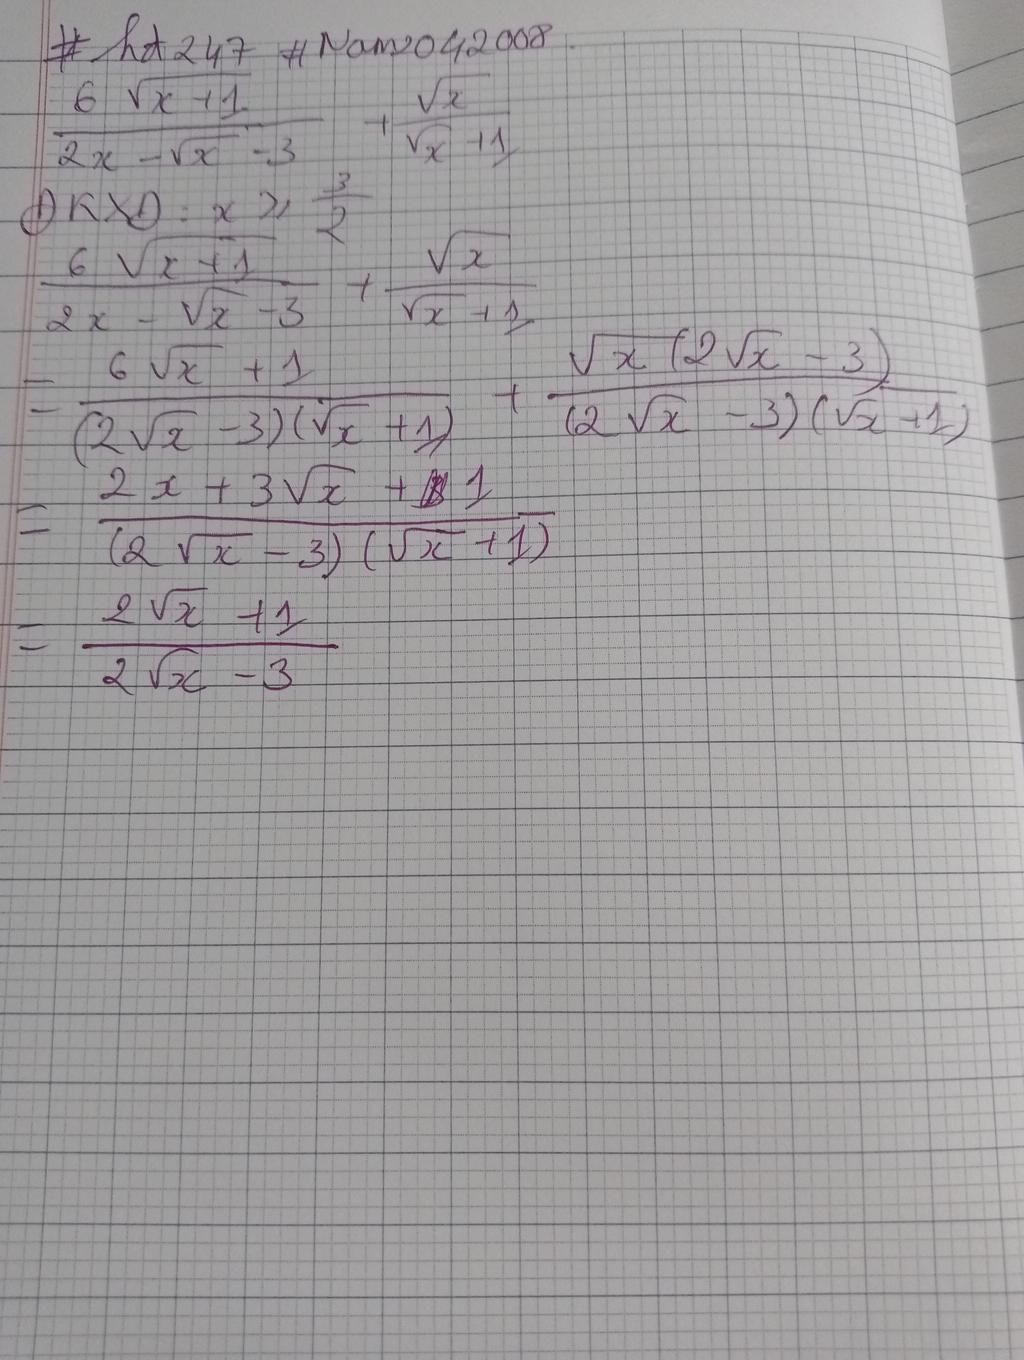 # hd247 #Nam2042008
6√(x+1)/(2x - √x - 3) + √x/(√x + 1)
ĐKXĐ: x ≥ 3/2
6√(x+1)/(2x - √x - 3) + √x/(√x + 1)
= (6√x + 1)/((2√x - 3)(√x + 1)) + √x(2√x - 3)/((2√x - 3)(√x + 1))
= (2x + 3√x + 1)/((2√x - 3)(√x + 1))
= (2√x + 1)/(2√x - 3)